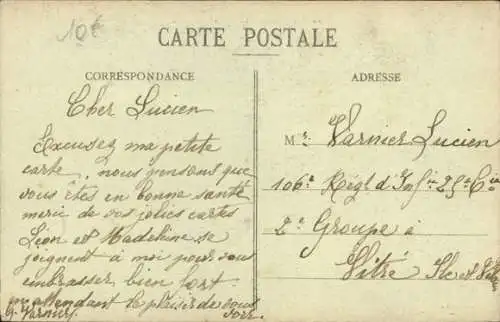 10€
CARTE POSTALE
CORRESPONDANCE
ADRESSE
Cher Lucien
Excusez ma petite
carte, nous pensons que
vous êtes en bonne santé
merci de vos jolies cartes
Léon et Madeleine se
joignent à moi pour vous
embrasser bien fort
en attendant le plaisir de vous
voir.
G. Varnier
Mr Varnier Lucien
106e Régt d'Infie 25e Cie
2e Groupe à
Vitré Ile et Vil